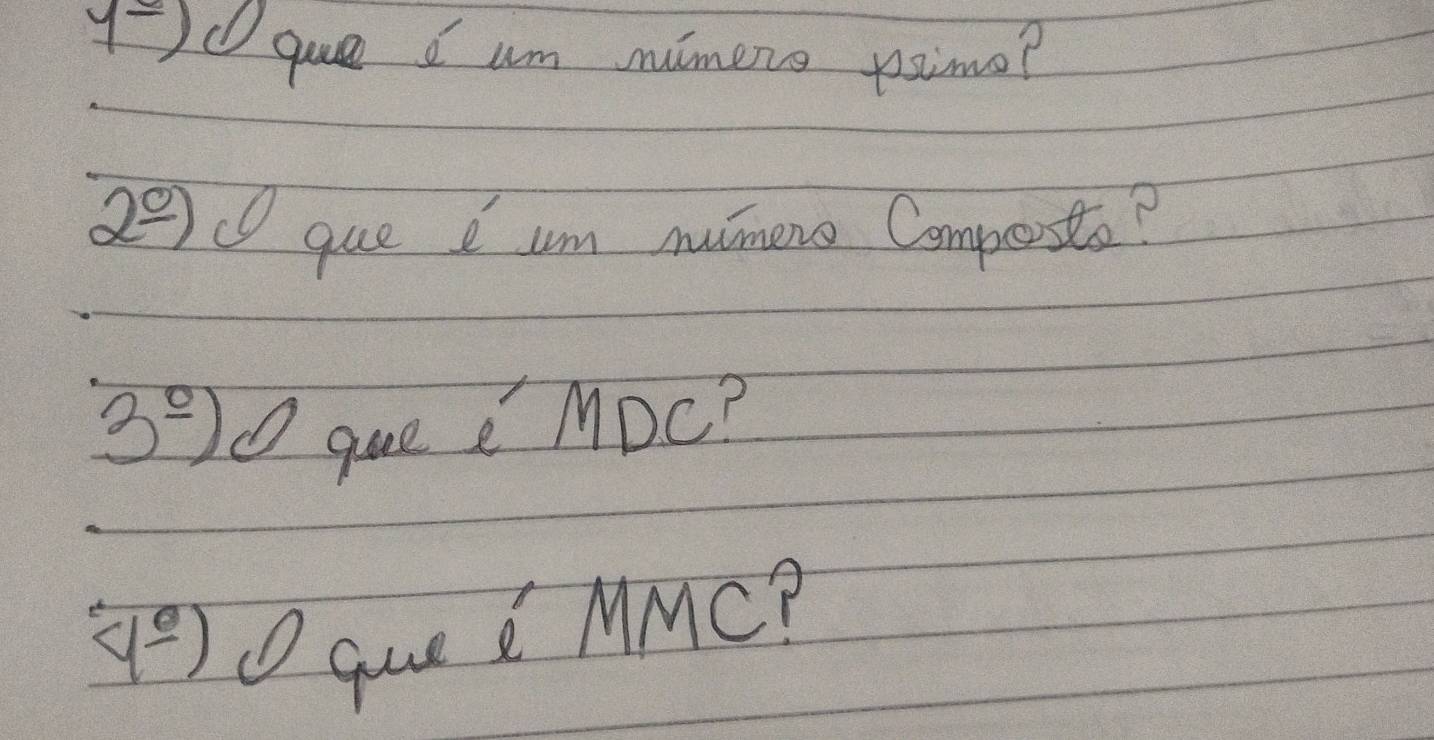 1º) O que é um número primo?
2º) O que é um número Composto?
3º) O que é MDC?
4º) O que é MMC?